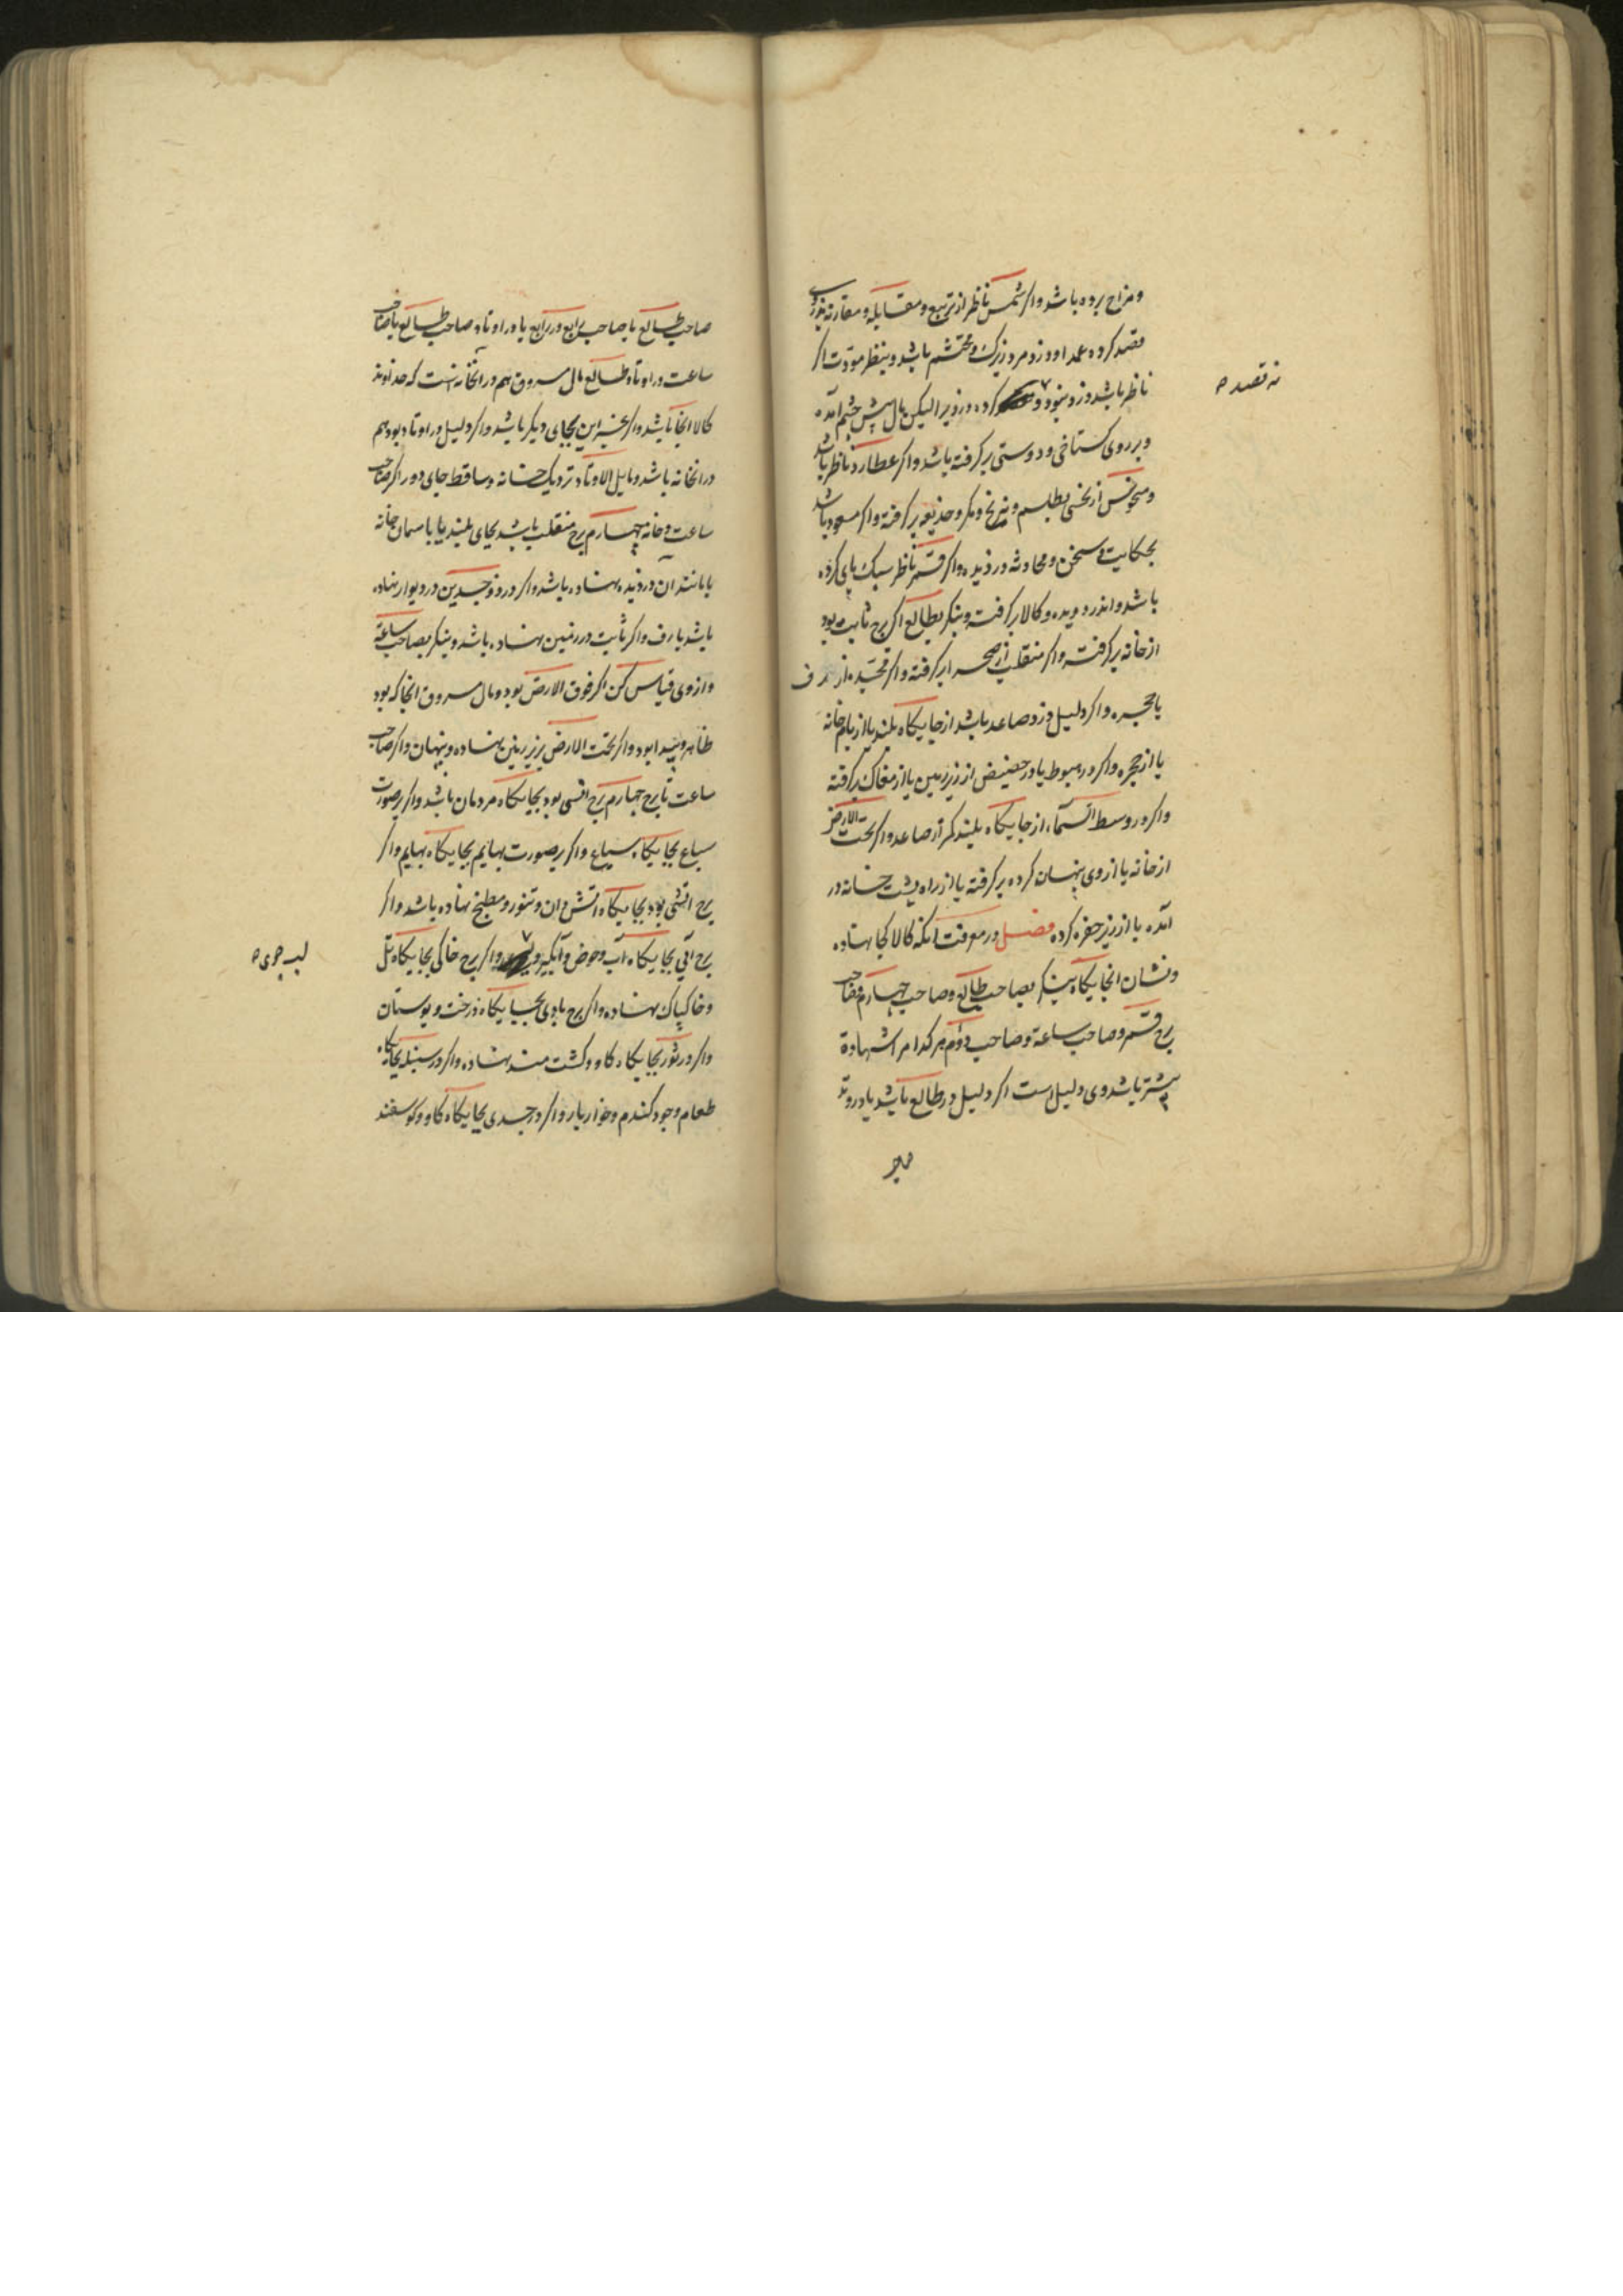 ومزاح بوده باشد واکر شمس ناظر از تربیع ومقابله ومقارنه بدزدی
قصد کرده عمدا ودزد مرد زیرک ومحتشم باشد وبنظر مودت اکر
ناظر باشد دزد نبود و کرده دزدیرا لیکن مال پیش چشم آمده
نه قصد ص
وبر روی کستاخی ودوستی بر کرفته باشد واکر عطارد ناظر باشد
ومنحوس از نحسی بطلسم ونیرنج ومکر وخدیعه بر کرفته واکر مسعود باشد
بحکایت وسخن ومحادثه دزدیده واکر قمر ناظر سبک پای کرده
باشد واندر دویده وکالا بر کرفته وبنکر بطالع اکر برج ثابت بود
از خانه بر کرفته واکر منقلب از صحرا بر کرفته واکر مجسّده از رف
یا حجره واکر دلیل دزد صاعد باشد از جایکاه بلند یا از بام خانه
یا از حجره واکر در هبوط یا در حضیض از زیر زمین یا از مغاک بر کرفته
واکر در وسط السّماء از جایکاه بلند کمتر از صاعد واکر تحت الارض
از خانه یا از وی پنهان کرده بر کرفته یا از راه پشت خانه در
آمده یا از زیر حفره کرده فصل در معرفت انکه کالا کجا نهاده
ونشان انجایکاه بنکر بصاحب طالع وصاحب چهارم وصاحب
برج قمر وصاحب ساعة وصاحب دوم هر کدام را شهادة
بیشتر باشد وی دلیل است اکر دلیل در طالع باشد یا در وتد
صاحب طالع یا صاحب رابع در رابع یا در اوتاد صاحب طالع یا صاحب
ساعت در اوتاد طالع مال مسروق هم در انخانه است که خداوند
کالا انجا باشد واکر بغیر این بجای دیکر باشد واکر دلیل در اوتاد بود هم
در انخانه باشد ومایل الاوتاد نزدیک خانه وساقط جای دور اکر صاحب
ساعت وخانه چهارم برج منقلب باشد بجای بلند یا باسمان خانه
یا مانند آن دزدیده نهاده باشد واکر در ذوجسدین در دیوار نهاده
باشد یا رف واکر ثابت در زمین نهاده باشد وبنکر بصاحب ساعة
وازوی قیاس کن اکر فوق الارض بود ومال مسروق انجا که بود
ظاهر وپیدا بود واکر تحت الارض بزیر زمین نهاده وپنهان واکر صاحب
ساعت یا برج چهارم برج انسی بود بجایکاه مردمان باشد واکر بر صورت
سباع بجایکاه سباع واکر بر صورت بهایم بجایکاه بهایم واکر
برج اتشی بود بجایکاه اتش دان وتنور ومطبخ نهاده باشد واکر
برج آبی بجایکاه آب وحوض وآبکیر و واکر برج خاکی بجایکاه تل
لب جوی ص
وخاک پاک نهاده واکر برج بادی بجایکاه درخت وبوستان
واکر در ثور بجایکاه کاو وکشت مند نهاده واکر در سنبله بجایکاه
طعام وجو وکندم وخوار بار واکر در جدی بجایکاه کاو وکوسفند